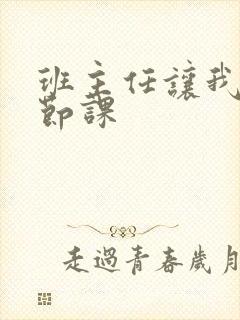 班主任讓我
節課
走過青春歲月